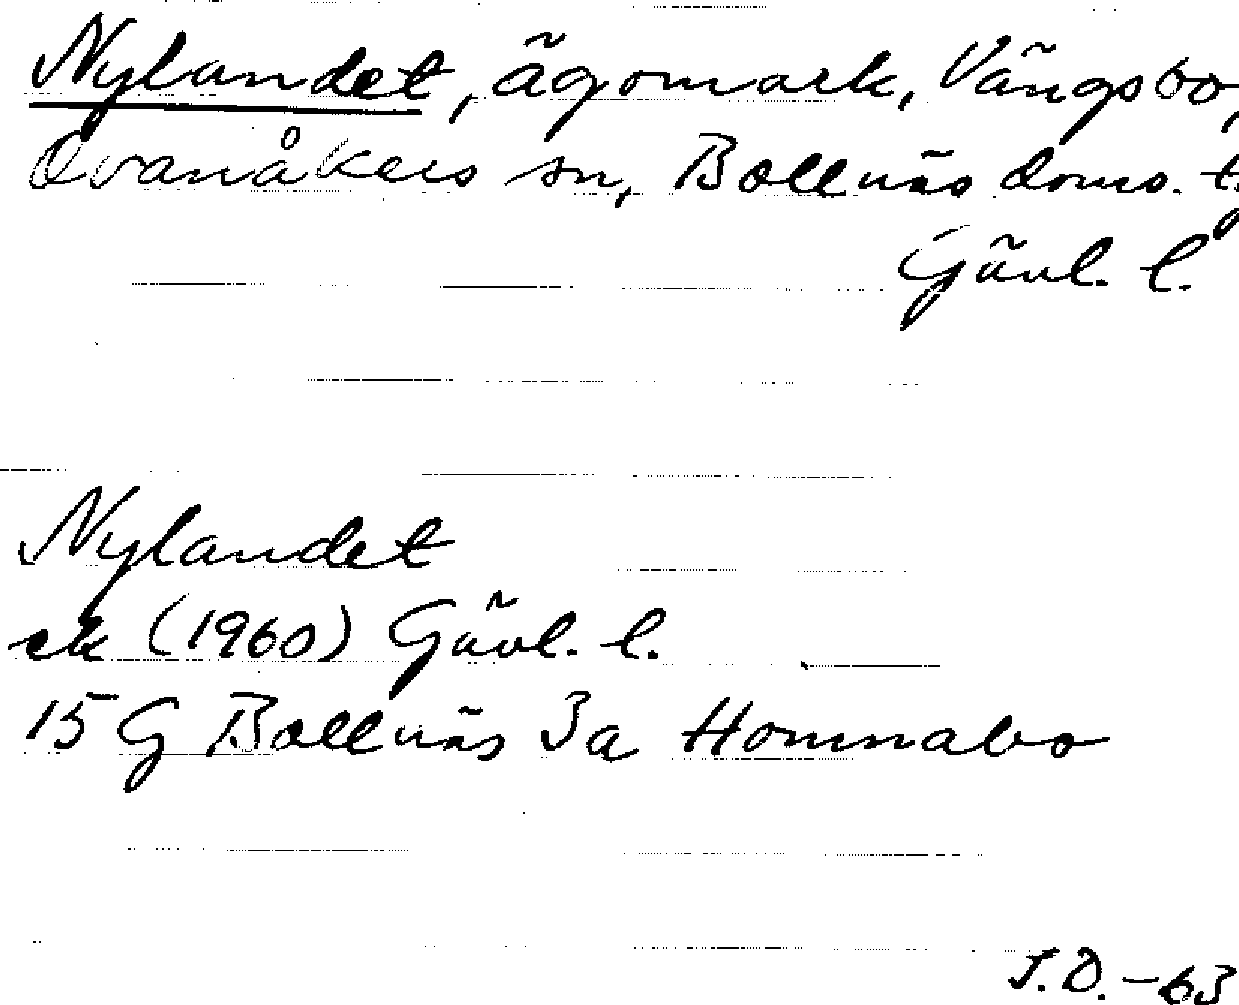 Nylandet, ägomark, Vängsbo,
Ovanåkers sn, Bollnäs doms. t.
Gävl. l.
Nylandet
ek (1960) Gävl. l.
15 G Bollnäs 3a Homnabo
J.D. -63